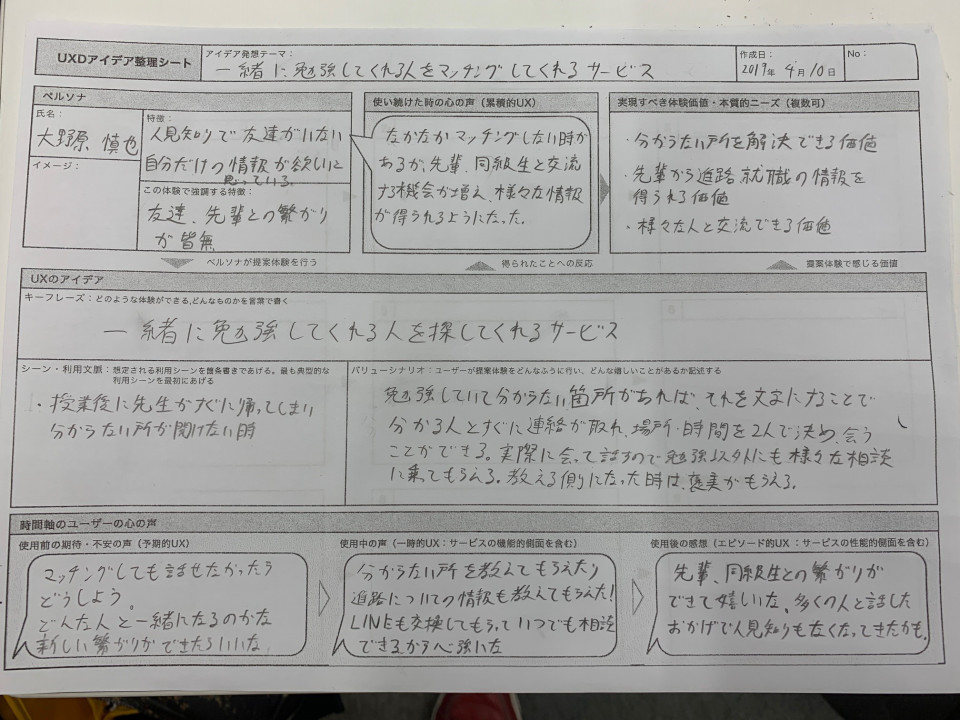 UXDアイデア整理シート
アイデア発想テーマ：
一緒に勉強してくれる人をマッチングしてくれるサービス
作成日：
2019年 4月10日
No：
ペルソナ
氏名：
大野原 慎也
イメージ：
特徴：
人見知りで友達がいない
自分だけの情報が欲しいと
思っている。
この体験で強調する特徴：
友達、先輩との繋がり
が皆無
使い続けた時の心の声（累積的UX）
なかなかマッチングしない時が
あるが、先輩、同級生と交流
する機会が増え、様々な情報
が得られるようになった。
実現すべき体験価値・本質的ニーズ（複数可）
・分からない所を解決できる価値
・先輩から進路、就職の情報を
得られる価値
・様々な人と交流できる価値
ペルソナが提案体験を行う
得られたことへの反応
提案体験で感じる価値
UXのアイデア
キーフレーズ：どのような体験ができる,どんなものかを言葉で書く
一緒に勉強してくれる人を探してくれるサービス
シーン・利用文脈：想定される利用シーンを箇条書きであげる。最も典型的な
利用シーンを最初にあげる
・授業後に先生がすぐに帰ってしまい
分からない所が聞けない時
バリューシナリオ：ユーザーが提案体験をどんなふうに行い、どんな嬉しいことがあるか記述する
勉強していて分からない箇所があれば、それを文章にすることで
分かる人とすぐに連絡が取れ、場所・時間を2人で決め、会う
ことができる。実際に会って話すので勉強以外にも様々な相談
に乗てもらえる。教える側になった時は、褒美がもらえる。
時間軸のユーザーの心の声
使用前の期待・不安の声（予期的UX）
マッチングしても話せなかったら
どうしよう。
どんな人と一緒になるのかな
新しい繋がりができたらいいな
使用中の声（一時的UX：サービスの機能的側面を含む）
分からない所を教えてもらえたり
進路についての情報も教えてもらえた！
LINEも交換してもらっていつでも相談
できるから心強いな
使用後の感想（エピソード的UX：サービスの性能的側面を含む）
先輩、同級生との繋がりが
できて嬉しいな、多くの人と話した
おかげで人見知りもなくなってきたかも。